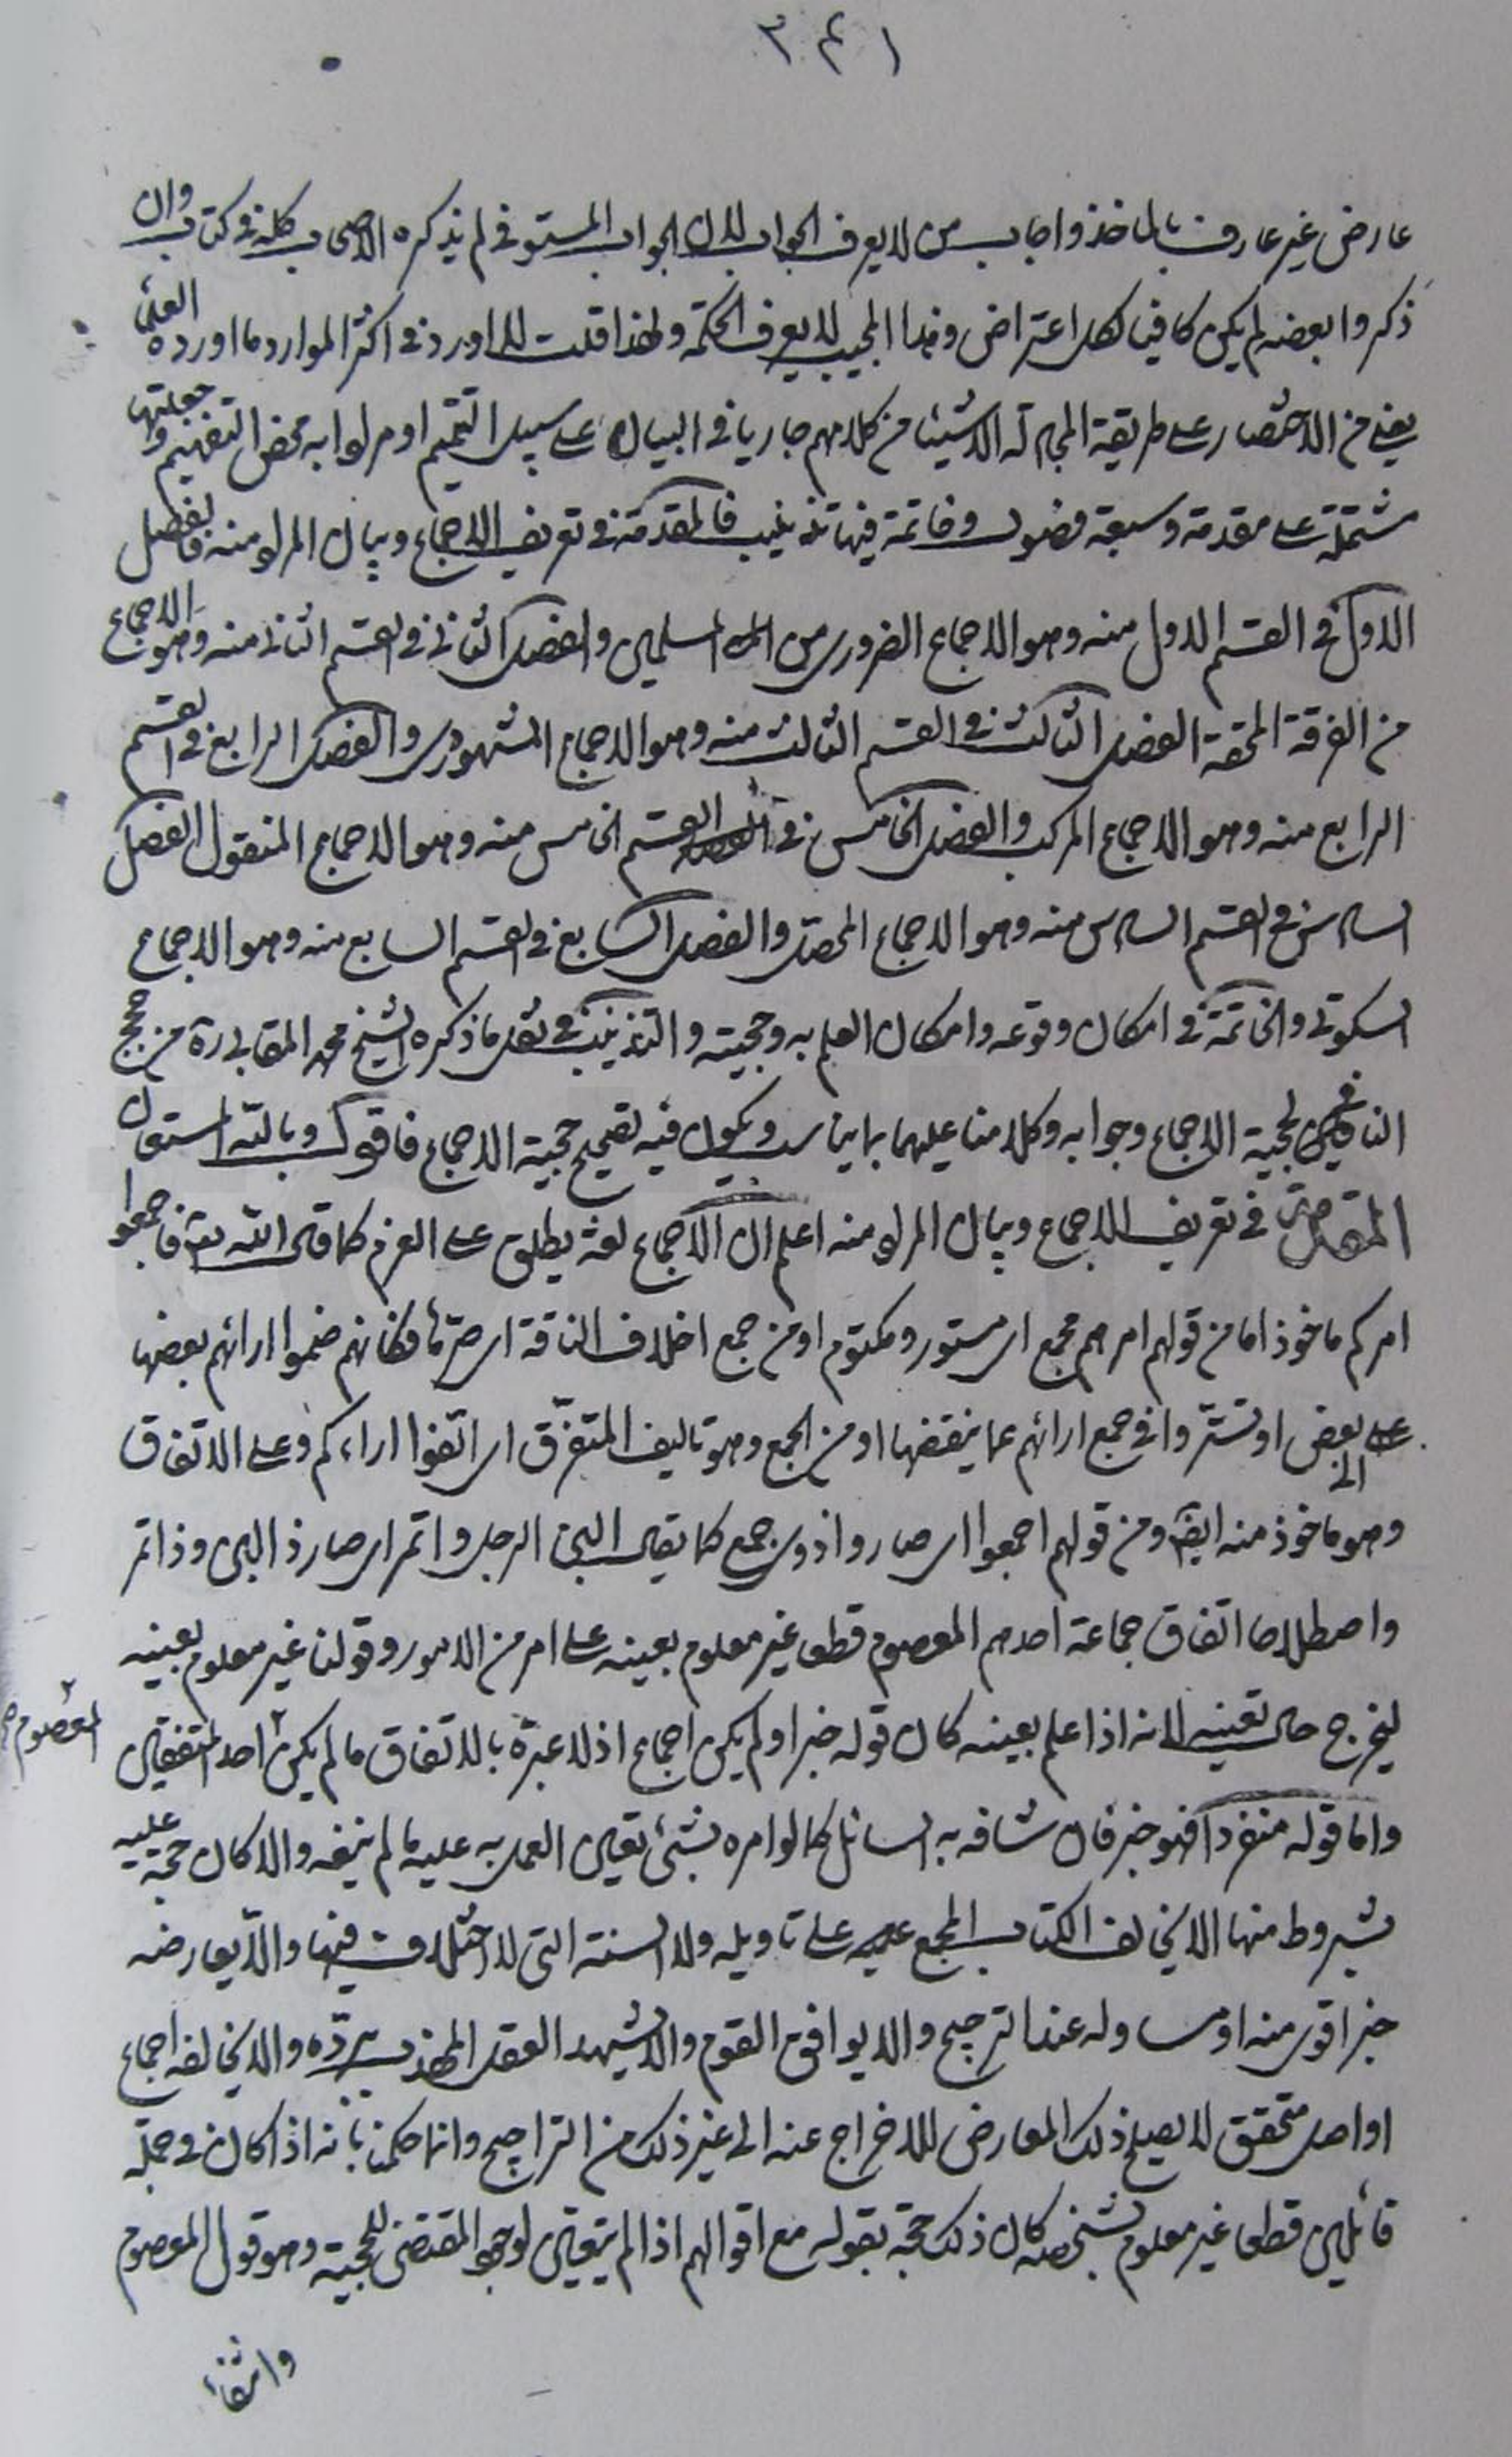 ٣٤١
عارض غير عارف بالماخذ واجاب من لا يعرف الجواب لان الجواب المستوفي لم يذكره الاصحاب كله في كتاب وان
ذكروا بعضه لم يكن كافيا لكل اعتراض وهذا المجيب لا يعرف الحكمة ولهذا قلت لا اورد في اكثر الموارد ما اورده العلماء
يعني من الاختصار على طريقة المجادلة الا شيئا من كلامهم جاريا في البيان على سبيل التتميم او مرادا به محض التفهيم وجعلتها
مشتملة على مقدمة وسبعة فصول وخاتمة فيها تذنيب فالمقدمة في تعريف الاجماع وبيان المراد منه فالفصل
الاول في القسم الاول منه وهو الاجماع الضروري من المسلمين والفصل الثاني في القسم الثاني منه وهو الاجماع
من الفرقة المحقة الفصل الثالث في القسم الثالث منه وهو الاجماع المشهوري والفصل الرابع في القسم
الرابع منه وهو الاجماع المركب والفصل الخامس في القسم الخامس منه وهو الاجماع المنقول الفصل
السادس في القسم السادس منه وهو الاجماع المحصل والفصل السابع في القسم السابع منه وهو الاجماع
السكوتي والخاتمة في امكان وقوعه وامكان العلم به وحجيته والتذنيب في نقل ما ذكره الشيخ محمد المقابي ره من حجج
النافين لحجية الاجماع وجوابه وكلامنا عليهما بما يناسب ويكون فيه تصحيح حجية الاجماع فاقول وبالله المستعان
المقدمة في تعريف الاجماع وبيان المراد منه اعلم ان الاجماع لغة يطلق على العزم كما قال الله تعالى فاجمعوا
امركم ماخوذ اما من قولهم امرهم مجمع اي مستور ومكتوم او من جمع اخلاف الناقة اي صرها فكانهم ضموا ارائهم بعضها
على الى بعض او تستروا في جمع ارائهم عما ينقضها او من الجمع وهو تاليف المتفرق اي اتفقوا اراءكم وعلى الاتفاق
وهو ماخوذ منه ايضا ومن قولهم اجمعوا اي صاروا ذوي جمع كما يقال البن الرجل واتمر اي صار ذا لبن وذا تمر
واصطلاحا اتفاق جماعة احدهم المعصوم قطعا غير معلوم بعينه على امر من الامور وقولنا غير معلوم بعينه
ليخرج حال تعيينه لانه اذا علم بعينه كان قوله خبرا ولم يكن اجماع اذ لا عبرة بالاتفاق ما لم يكن احد المتفقين
المعصوم صح
واما قوله منفردا فهو خبر فان شافه به السائل كما لو امره بشئ تعين العمل به عليه ما لم ينفه والا كان حجة عليه
بشروط منها الا يخالف الكتاب المجمع عليه على تاويله ولا السنة التي لا اختلاف فيها والا يعارضه
خبر اقوى منه او مساو له عند الترجيح والا يوافق القوم والا يشهد العقل المهذب برده والا يخالفه اجماع
او اصل متحقق لا يصلح ذلك المعارض للاخراج عنه الى غير ذلك من التراجيح وانما حكمنا بانه اذا كان في جملة
قائلين قطعا غير معلوم بشخصه كان ذلك حجة بقوله مع اقوالهم اذا لم يتعين لوجود المقتضي للحجية وهو قول المعصوم
وانتفاء